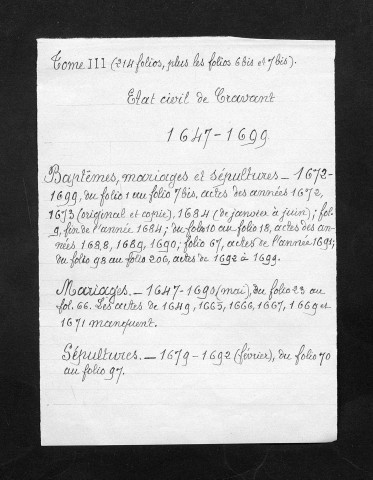 Tome III (214 folios, plus les folios 6 bis et 7 bis).
Etat civil de Cravant
1647-1699
Baptêmes, mariages et sépultures _ 1672-
1699, du folio 1 au folio 7 bis, actes des années 1672,
1673 (original et copie), 1684 (de janvier à juin); fol.
9, fin de l'année 1684; du folio 10 au folio 18, actes des an-
nées 1688, 1689, 1690; folio 67, actes de l'année 1691;
du folio 98 au folio 206, actes de 1692 à 1699.
Mariages. _ 1647-1690 (mai), du folio 23 au
fol. 66. Les actes de 1649, 1665, 1666, 1667, 1669 et
1671 manquent.
Sépultures. _ 1679-1692 (février), du folio 70
au folio 97.